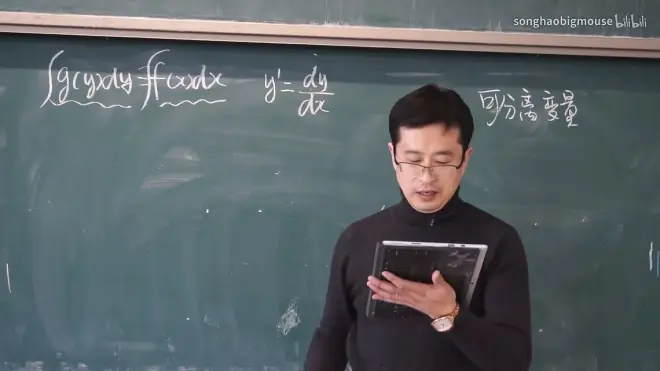 songhaobigmouse bilibili
∫g(y)dy=∫f(x)dx
y'=dy/dx
可分离变量